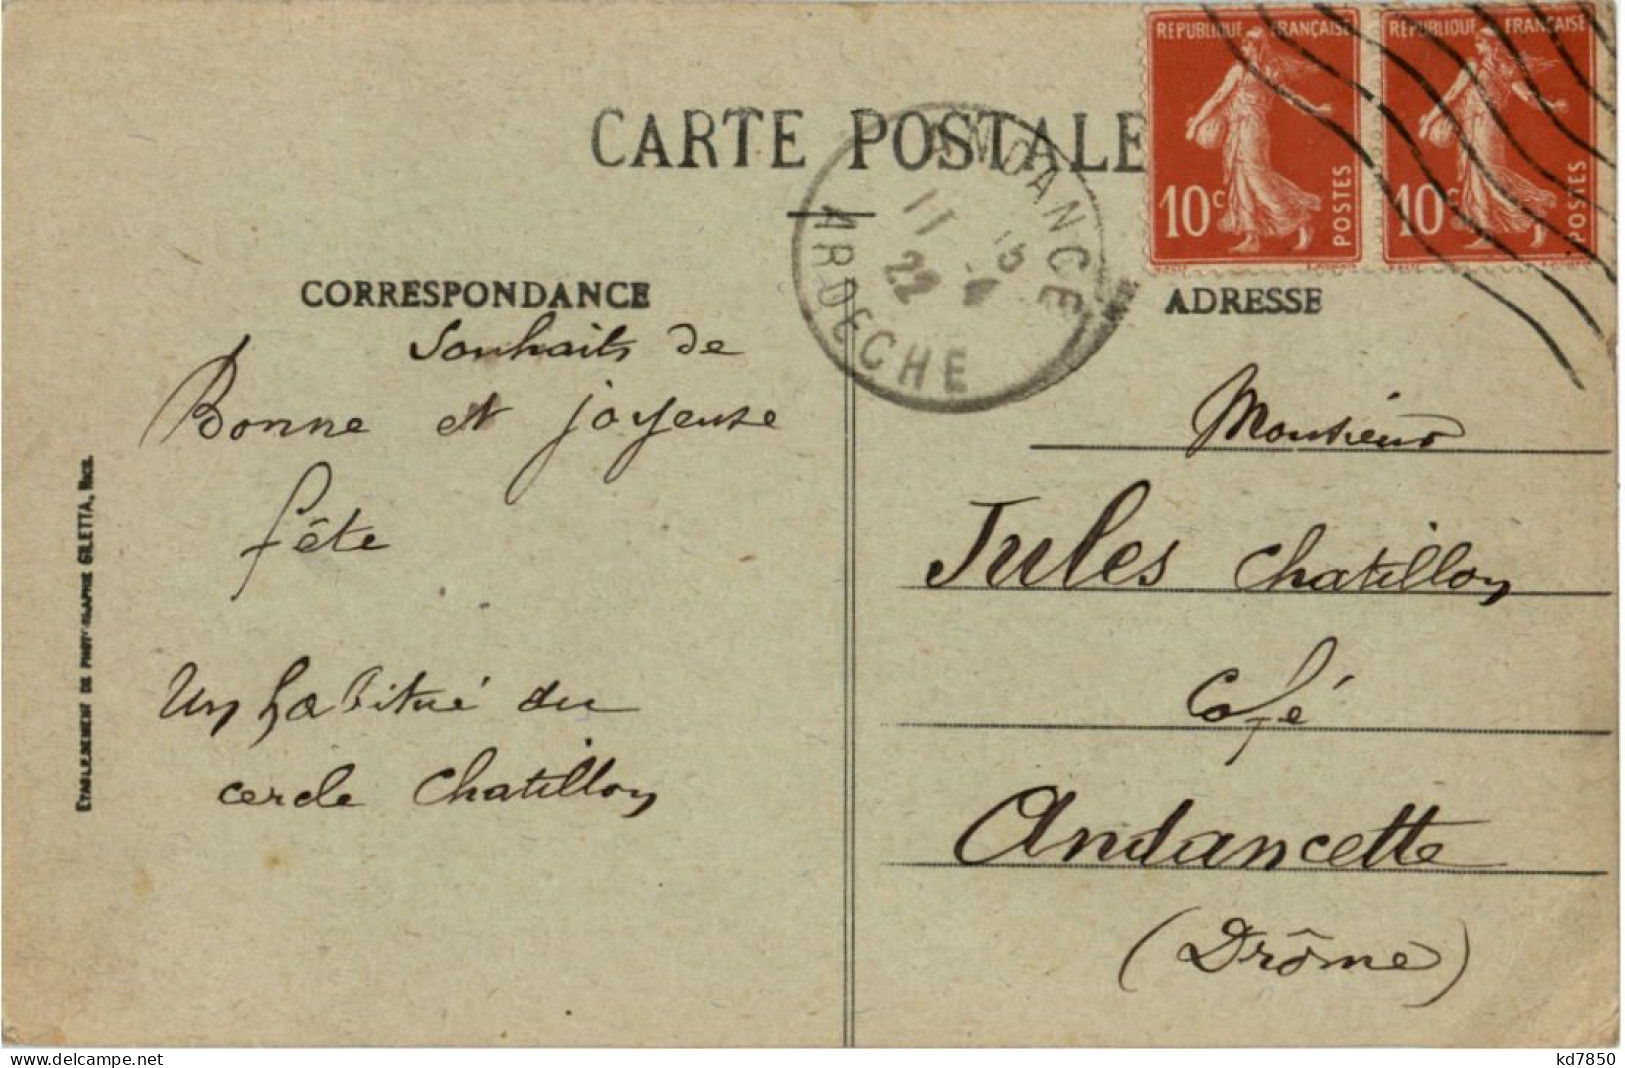 RÉPUBLIQUE FRANÇAISE
10c POSTES
RÉPUBLIQUE FRANÇAISE
10c POSTES
CARTE POSTALE
ANDANCE
11
22
ARDECHE
CORRESPONDANCE
ADRESSE
Souhaits de
Bonne et joyeuse
fête
Un habitué du
cercle Chatillon
Monsieur
Jules Chatillon
Café
Andancette
(Drôme)
ÉTABLISSEMENT DE PHOTOGRAPHIE GILETTA, NICE.
www.delcampe.net
kd7850